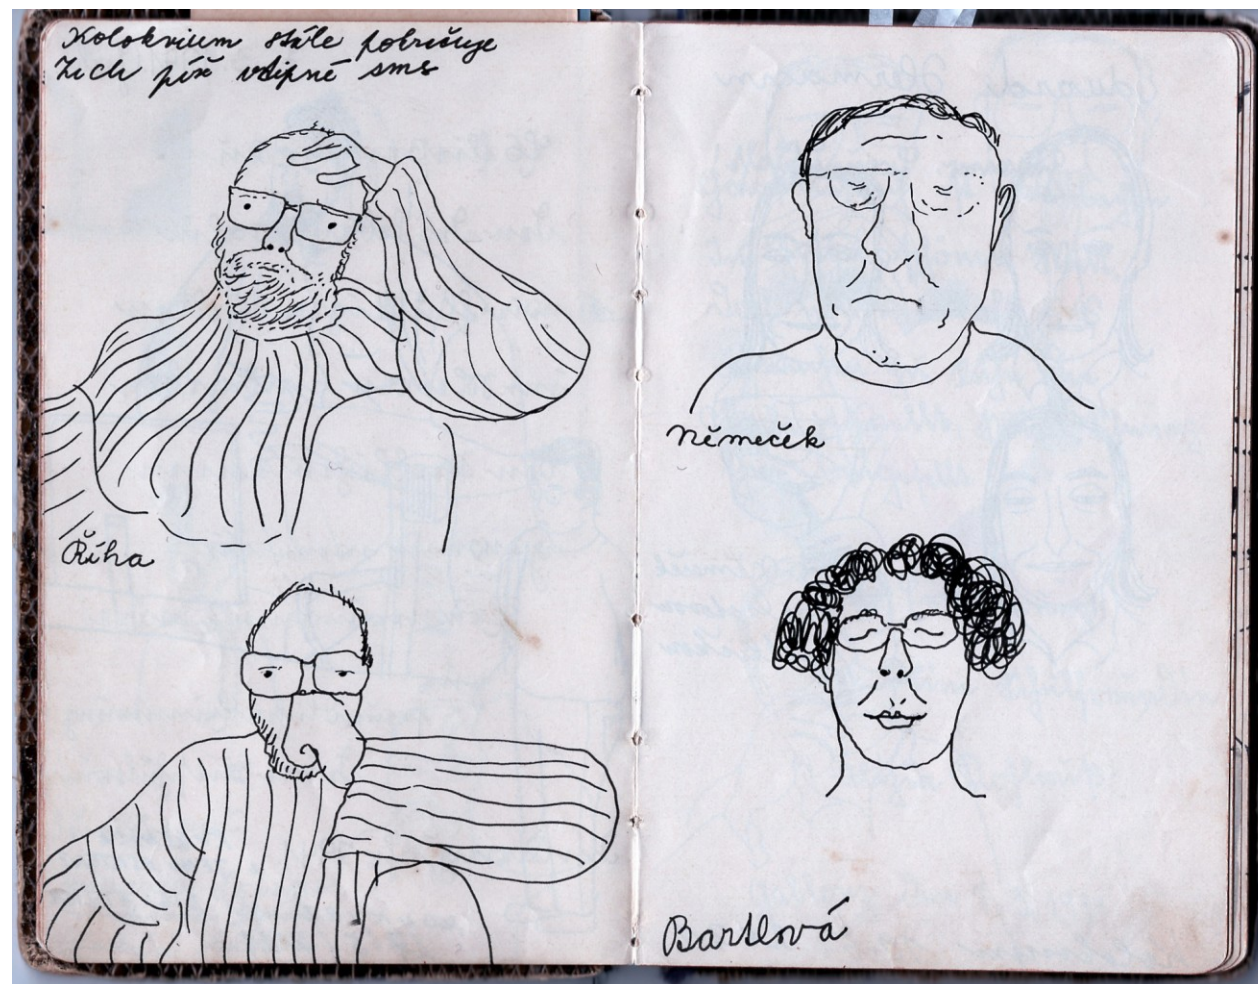 Kolokvium stále pokračuje
Zich píše vtipné sms
Říha
Němeček
Bartlová